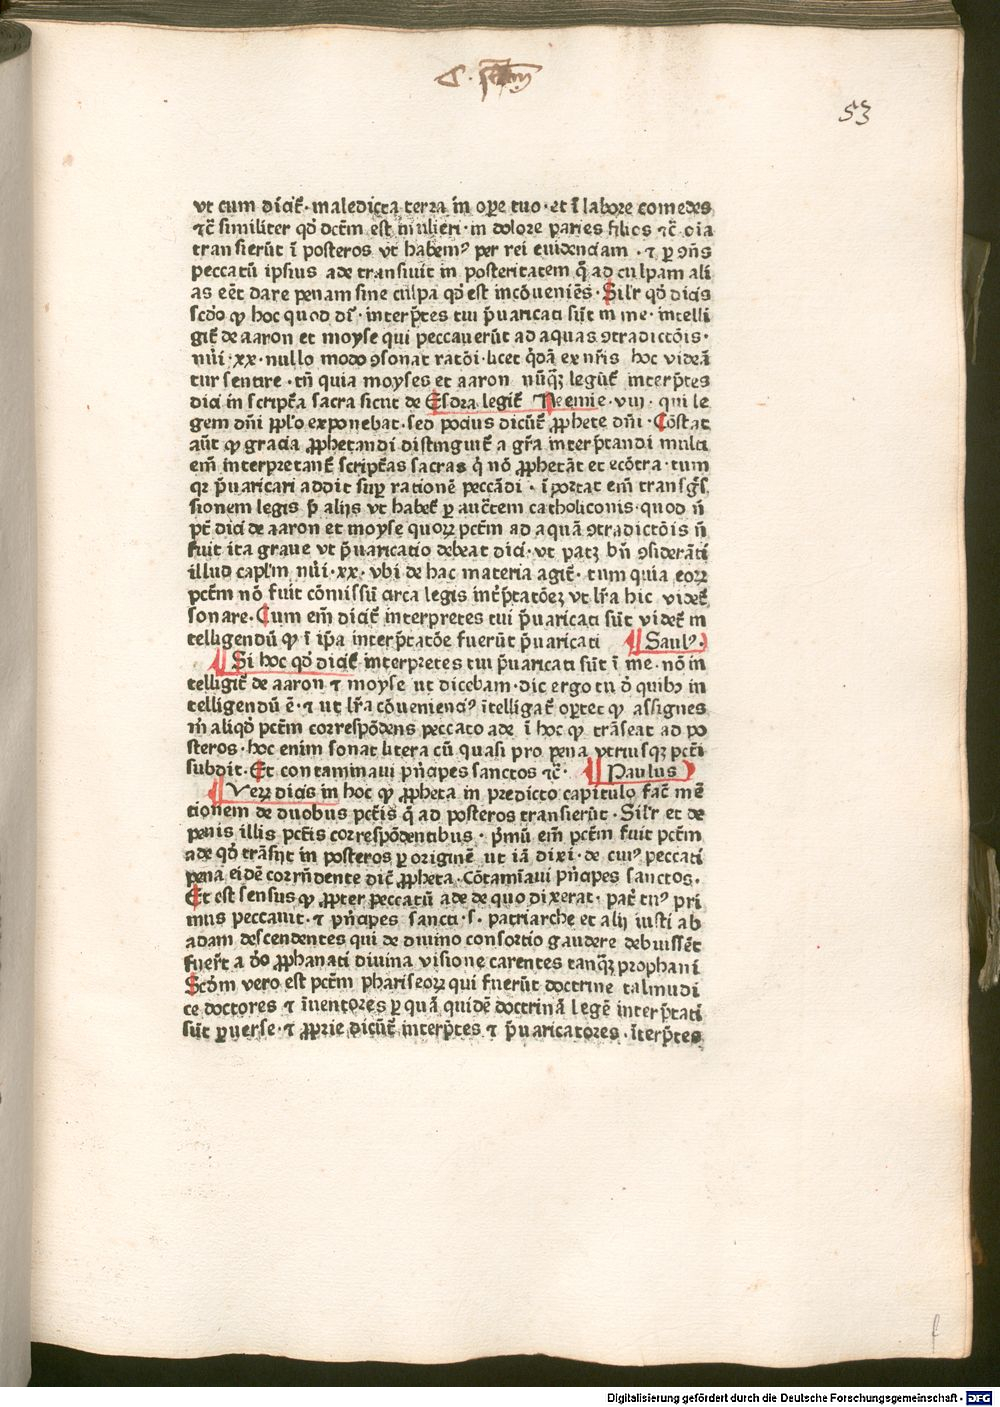 53
vt cum dicit̃· maledicta terra in oꝑe tuo· et ĩ labore comedes
⁊c̃ similiter qd̕ dctm̃ est mulieri· in dolore paries filios ⁊c̃ oĩa
transierũt ĩ posteros vt habemꝰ per rei euidenciam · ⁊ ꝑ ꝯñs
peccatũ ipsius ade transiuit in posteritatem q̃ ad culpam ali
as eẽt dare penam sine culpa qd̕ est incõueniẽs· Sil̕r qd̕ dicis
scd̕o ꝙ hoc quod dr̃ · interp̃tes tui p̃uaricati sũt in me· intelli
git̃ de aaron et moyse qui peccauerũt ad aquas ꝯtradictõis·
nũi·xx· nullo modo ꝯsonat ratõi· licet q̃dã ex nr̃is hoc videã
tur sentire · tñ quia moyses et aaron nũq̃ꝫ legũt̃ interp̃tes
dici in script̃a sacra sicut de Esdra legit̃ Neemie·viij· qui le
gem dñi ppl̕o exponebat· sed pocius dicũt̃ ꝓphete dñi · Cõstat
aũt ꝙ gracia ꝓphetandi distinguit̃ a gr̃a interp̃tandi multi
em̃ interpretant̃ script̃as sacras q̃ nõ ꝓphetãt et ecõtra · tum
qꝛ p̃uaricari addit suꝑ rationẽ peccãdi · ĩportat em̃ transg̃s
sionem legis p̃ alijs vt habet̃ ꝑ auctẽm catholiconis· quod ñ
pt̃ dici de aaron et moyse quoꝝ pctm̃ ad aquã ꝯtradictõis ñ
fuit ita graue vt p̃uaricatio debeat dici· vt patꝫ bñ ꝯsiderãti
illud capl̕m nũi·xx· vbi de hac materia agit̃· tum quia eoꝝ
pctm̃ nõ fuit cõmissũ circa legis int̃p̃tatõeꝫ vt lr̃a hic videt̃
sonare. Cum em̃ dicit̃ interpretes tui p̃uaricati sũt videt̃ in
telligendũ ꝙ ĩ ip̃a interp̃tatõe fuerũt p̃uaricati ¶ Saulꝰ·
¶ Si hoc qd̕ dicit̃ interpretes tui p̃uaricati sũt ĩ me· nõ in
telligit̃ de aaron ⁊ moyse ut dicebam· dic ergo tu d̕ quibꝫ in
telligendũ ẽ· ⁊ ut lr̃a cõueniencꝰ ĩtelligat̃ oportet ꝙ assignes
m̃ aliqd̕ pctm̃ correspõdens peccato ade ĩ hoc ꝙ trãseat ad po
steros· hoc enim sonat litera cũ quasi pro pena vtriusqꝫ pcti̕
subdit· Et contaminaui pñcipes sanctos ⁊c̃· ¶ Paulus
¶ Veꝝ dicis in hoc ꝙ ꝓpheta in predicto capitulo fac̃ mẽ
tionem de duobus pctis̃ q̃ ad posteros transierũt · Sil̕r et de
penis illis pctis̃ correspõdentibus · p̃mũ em̃ pctm̃ fuit pctm̃
ade qd̕ trãsijt in posteros ꝑ originẽ ut iã dixi· de cuiꝰ peccati
pena eidẽ corrñdente dic̃ ꝓpheta· Cõtamĩaui pñcipes sanctos·
Et est sensus ꝙ ꝓpter peccatũ ade de quo dixerat· pat̃ tuꝰ pri
mus peccauit· ⁊ pñcipes sancti ·s· patriarche et alij iusti ab
adam descendentes qui de diuino consortio gaudere debuissẽt
fuer̃t a d̕o ꝓphanati diuina visione carentes tanq̃ꝫ prophani
Scd̕m vero est pctm̃ phariseoꝝ qui fuerũt doctrine talmudi
ce doctores ⁊ ĩuentores ꝑ quã quidẽ doctrinã legẽ interp̃tati
sũt ꝑuerse· ⁊ ꝓprie dicũt̃ interp̃tes ⁊ p̃uaricatores· ĩterp̃tes
f
Digitalisierung gefördert durch die Deutsche Forschungsgemeinschaft - DFG